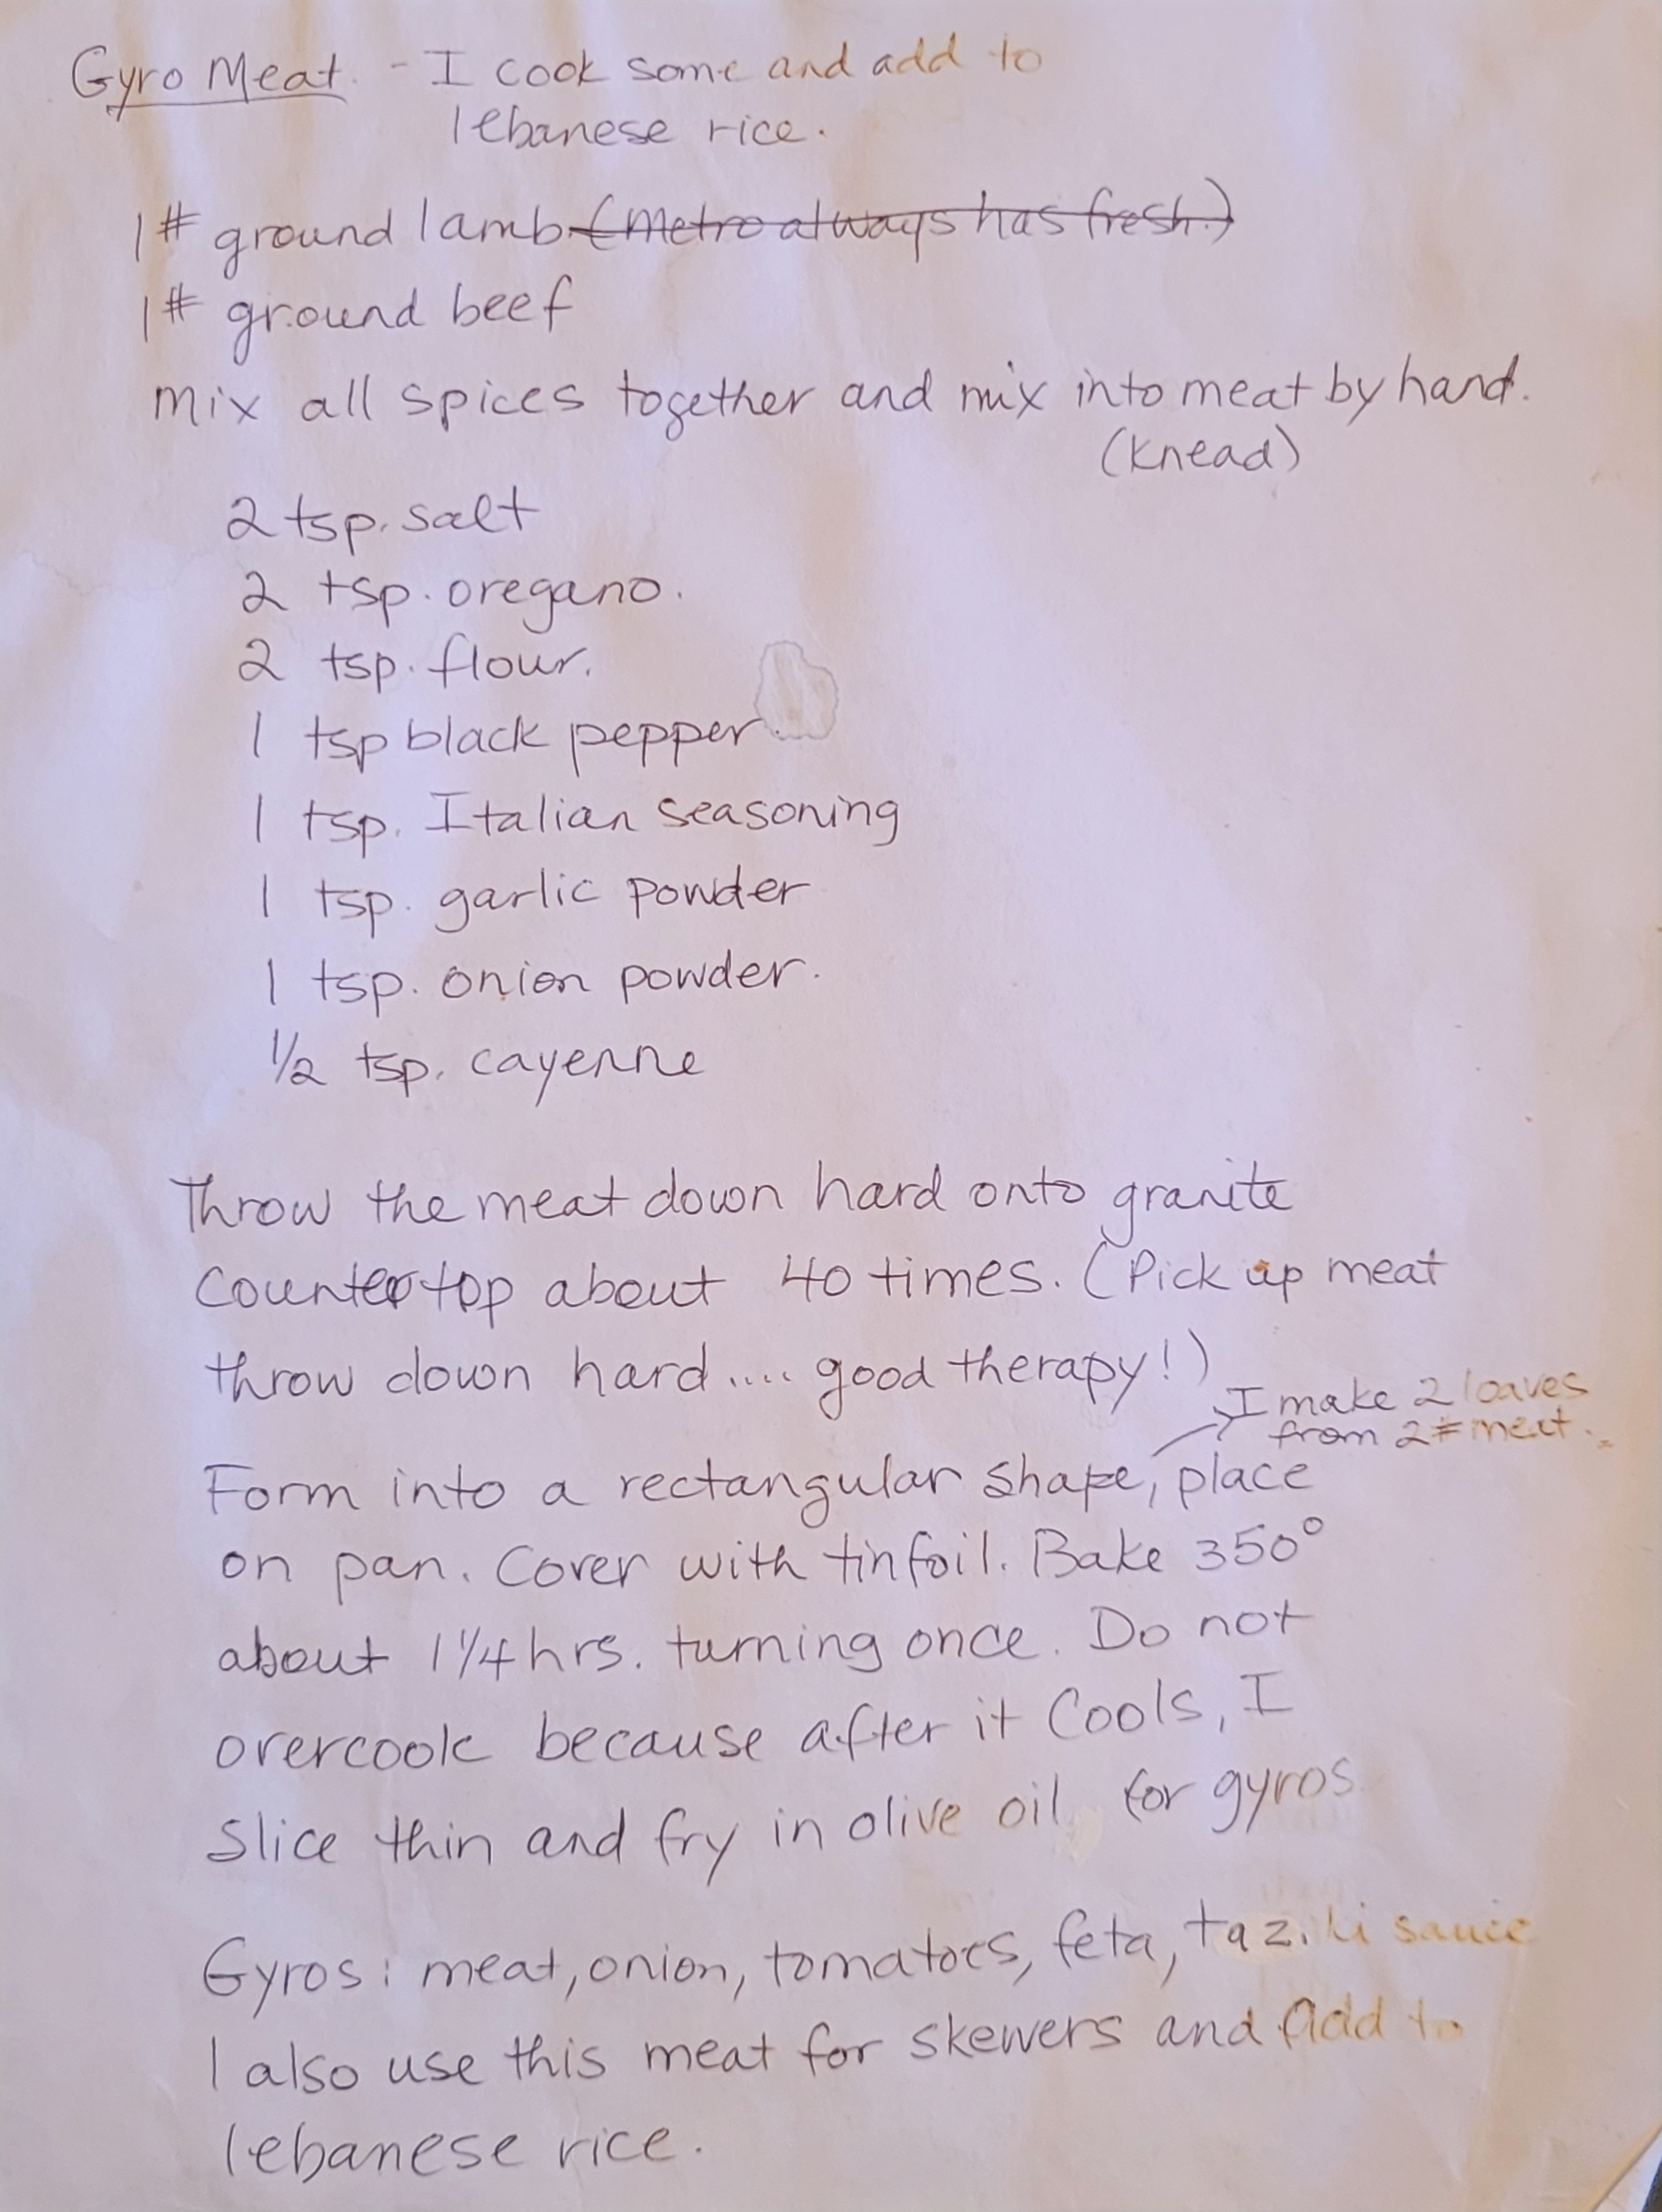 Gyro Meat. - I cook some and add to
lebanese rice.
1# ground lamb (Metro always has fresh.)
1# ground beef
mix all spices together and mix into meat by hand.
(knead)
2 tsp. salt
2 tsp. oregano.
2 tsp. flour.
1 tsp black pepper.
1 tsp. Italian seasoning
1 tsp. garlic powder
1 tsp. onion powder.
1/2 tsp. cayenne
Throw the meat down hard onto granite
countertop about 40 times. (Pick up meat
throw down hard.... good therapy!)
I make 2 loaves
from 2# meat.
Form into a rectangular shape, place
on pan. Cover with tinfoil. Bake 350°
about 1 1/4 hrs. turning once. Do not
overcook because after it cools, I
slice thin and fry in olive oil for gyros
Gyros: meat, onion, tomatoes, feta, taziki sauce
I also use this meat for skewers and add to
lebanese rice.